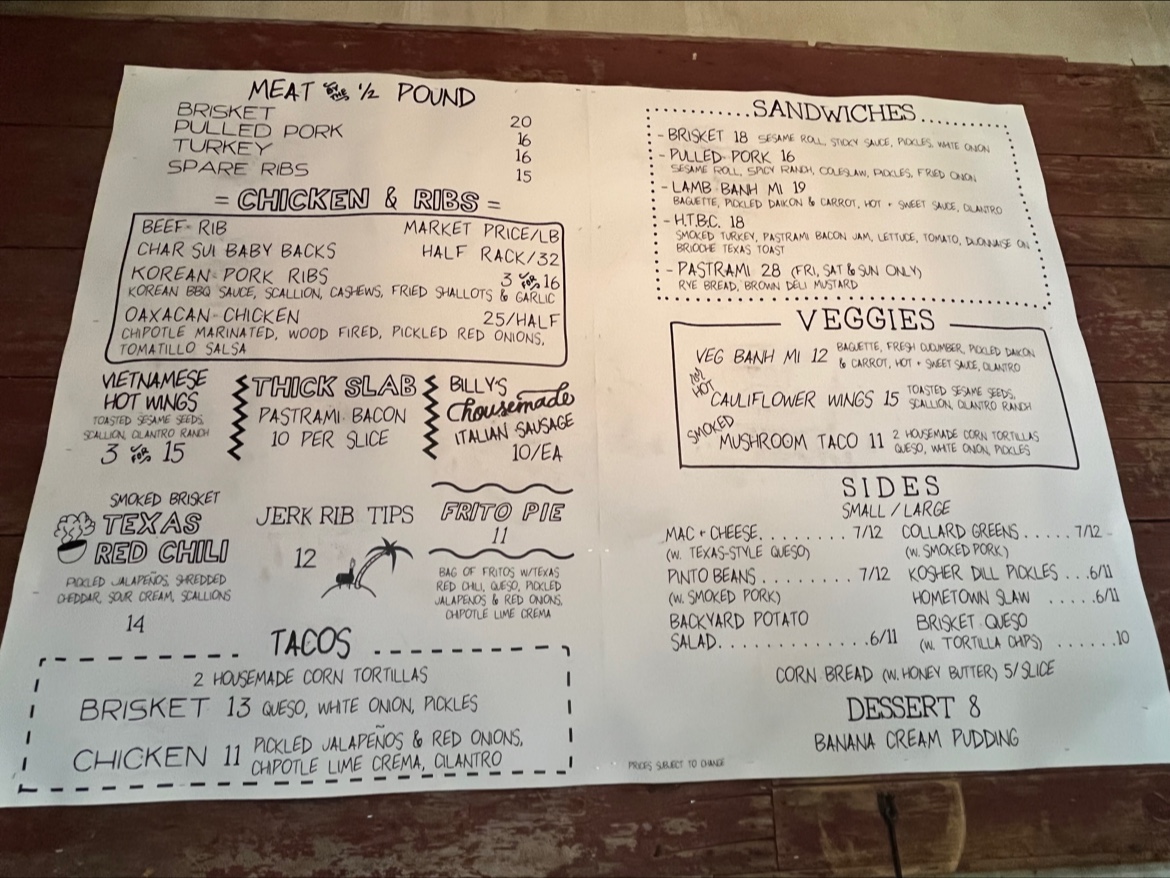 MEAT BY THE 1/2 POUND
BRISKET 20
PULLED PORK 16
TURKEY 16
SPARE RIBS 15
= CHICKEN & RIBS =
BEEF RIB MARKET PRICE/LB
CHAR SUI BABY BACKS HALF RACK/32
KOREAN PORK RIBS 3 FOR 16
KOREAN BBQ SAUCE, SCALLION, CASHEWS, FRIED SHALLOTS & GARLIC
OAXACAN CHICKEN 25/HALF
CHIPOTLE MARINATED, WOOD FIRED, PICKLED RED ONIONS,
TOMATILLO SALSA
VIETNAMESE
HOT WINGS
TOASTED SESAME SEEDS,
SCALLION, CILANTRO RANCH
3 FOR 15
THICK SLAB
PASTRAMI BACON
10 PER SLICE
BILLY'S
housemade
ITALIAN SAUSAGE
10/EA
SMOKED BRISKET
TEXAS
RED CHILI
PICKLED JALAPEÑOS, SHREDDED
CHEDDAR, SOUR CREAM, SCALLIONS
14
JERK RIB TIPS
12
FRITO PIE
11
BAG OF FRITOS W/TEXAS
RED CHILI, QUESO, PICKLED
JALAPEÑOS & RED ONIONS,
CHIPOTLE LIME CREMA
TACOS
2 HOUSEMADE CORN TORTILLAS
BRISKET 13 QUESO, WHITE ONION, PICKLES
CHICKEN 11 PICKLED JALAPEÑOS & RED ONIONS,
CHIPOTLE LIME CREMA, CILANTRO
SANDWICHES
- BRISKET 18 SESAME ROLL, STICKY SAUCE, PICKLES, WHITE ONION
- PULLED PORK 16
SESAME ROLL, SPICY RANCH, COLESLAW, PICKLES, FRIED ONION
- LAMB BANH MI 19
BAGUETTE, PICKLED DAIKON & CARROT, HOT + SWEET SAUCE, CILANTRO
- H.T.B.C. 18
SMOKED TURKEY, PASTRAMI BACON JAM, LETTUCE, TOMATO, DIJONNAISE ON
BRIOCHE TEXAS TOAST
- PASTRAMI 28 (FRI, SAT & SUN ONLY)
RYE BREAD, BROWN DELI MUSTARD
VEGGIES
VEG BANH MI 12 BAGUETTE, FRESH CUCUMBER, PICKLED DAIKON
& CARROT, HOT + SWEET SAUCE, CILANTRO
HOT
CAULIFLOWER WINGS 15 TOASTED SESAME SEEDS,
SCALLION, CILANTRO RANCH
SMOKED
MUSHROOM TACO 11 2 HOUSEMADE CORN TORTILLAS
QUESO, WHITE ONION, PICKLES
SIDES
SMALL/LARGE
MAC + CHEESE........ 7/12
(W. TEXAS-STYLE QUESO)
PINTO BEANS ........ 7/12
(W. SMOKED PORK)
BACKYARD POTATO
SALAD..............6/11
COLLARD GREENS.....7/12
(W. SMOKED PORK)
KOSHER DILL PICKLES ...6/11
HOMETOWN SLAW .....6/11
BRISKET QUESO
(W. TORTILLA CHIPS) .......10
CORN BREAD (W. HONEY BUTTER) 5/SLICE
DESSERT 8
BANANA CREAM PUDDING
PRICES SUBJECT TO CHANGE